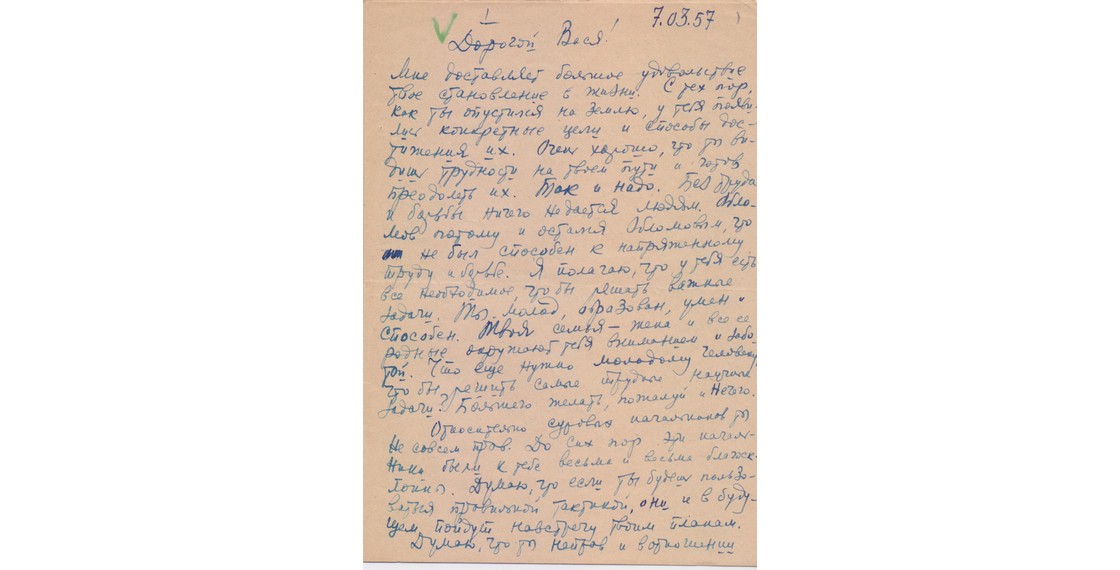 1
7.03.57
Дорогой Вася!
Мне доставляет большое удовольствие
твое становление в жизни. С тех пор,
как ты опустился на Землю, у тебя появи-
лись конкретные цели и способы дос-
тижения их. Очень хорошо, что ты ви-
дишь трудности на твоем пути и готов
преодолеть их. Так и надо. Без труда
и борьбы ничего не дается людям. Обло-
мов потому и остался Обломовым, что
не был способен к напряженному
труду и борьбе. Я полагаю, что у тебя есть
все необходимое, чтобы решать важные
задачи. Ты молод, образован, умен и
способен. Твоя семья – жена и все ее
родные окружают тебя вниманием и забо-
той. Что еще нужно молодому человеку,
чтобы решить самые трудные научные
задачи? Большего желать, пожалуй и нечего.
Относительно суровых начальников ты
не совсем прав. До сих пор эти началь-
ники были к тебе весьма и весьма благоск-
лонны. Думаю, что если ты будешь пользо-
ваться правильной тактикой, они и в буду-
щем пойдут навстречу твоим планам.
Думаю, что ты неправ и в отношении